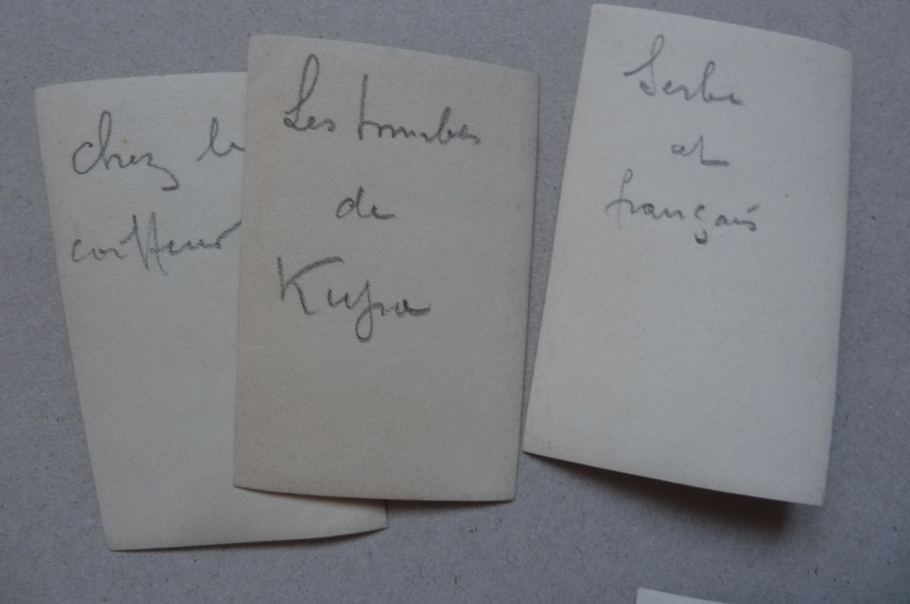 chez le
coiffeur
Les tombes
de
Kupa
Serbe
et
français